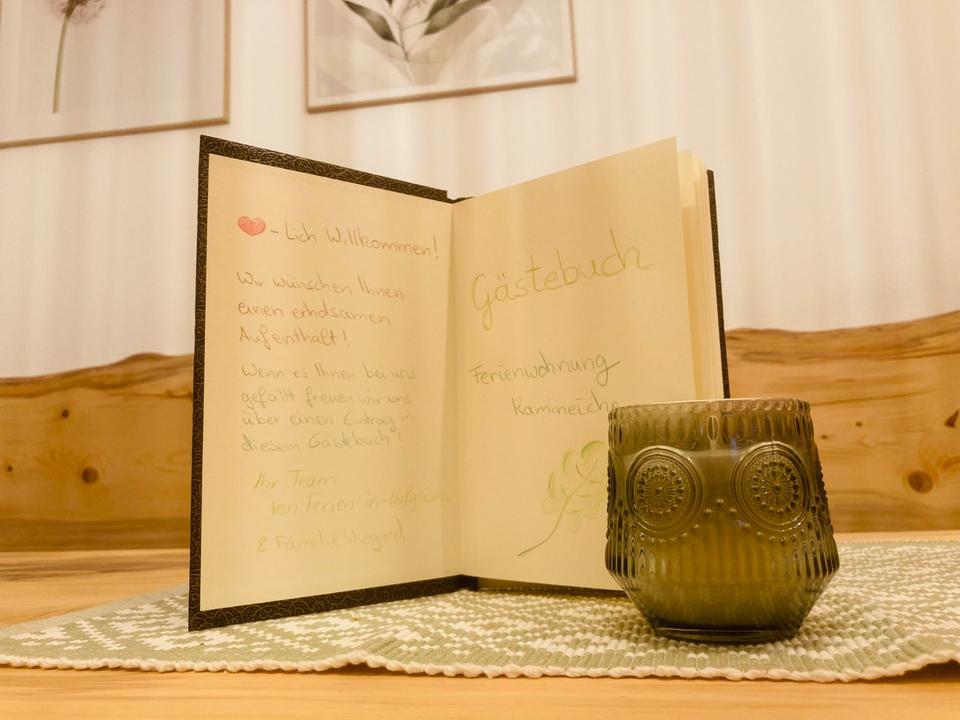 ❤-Lich Willkommen!
Wir wünschen Ihnen
einen erholsamen
Aufenthalt!
Wenn es Ihnen bei uns
gefällt freuen wir uns
über einen Eintrag in
diesem Gästebuch!
Ihr Team
von Ferien-in-
& Familie Wiegand
Gästebuch
Ferienwohnung
Kamineiche